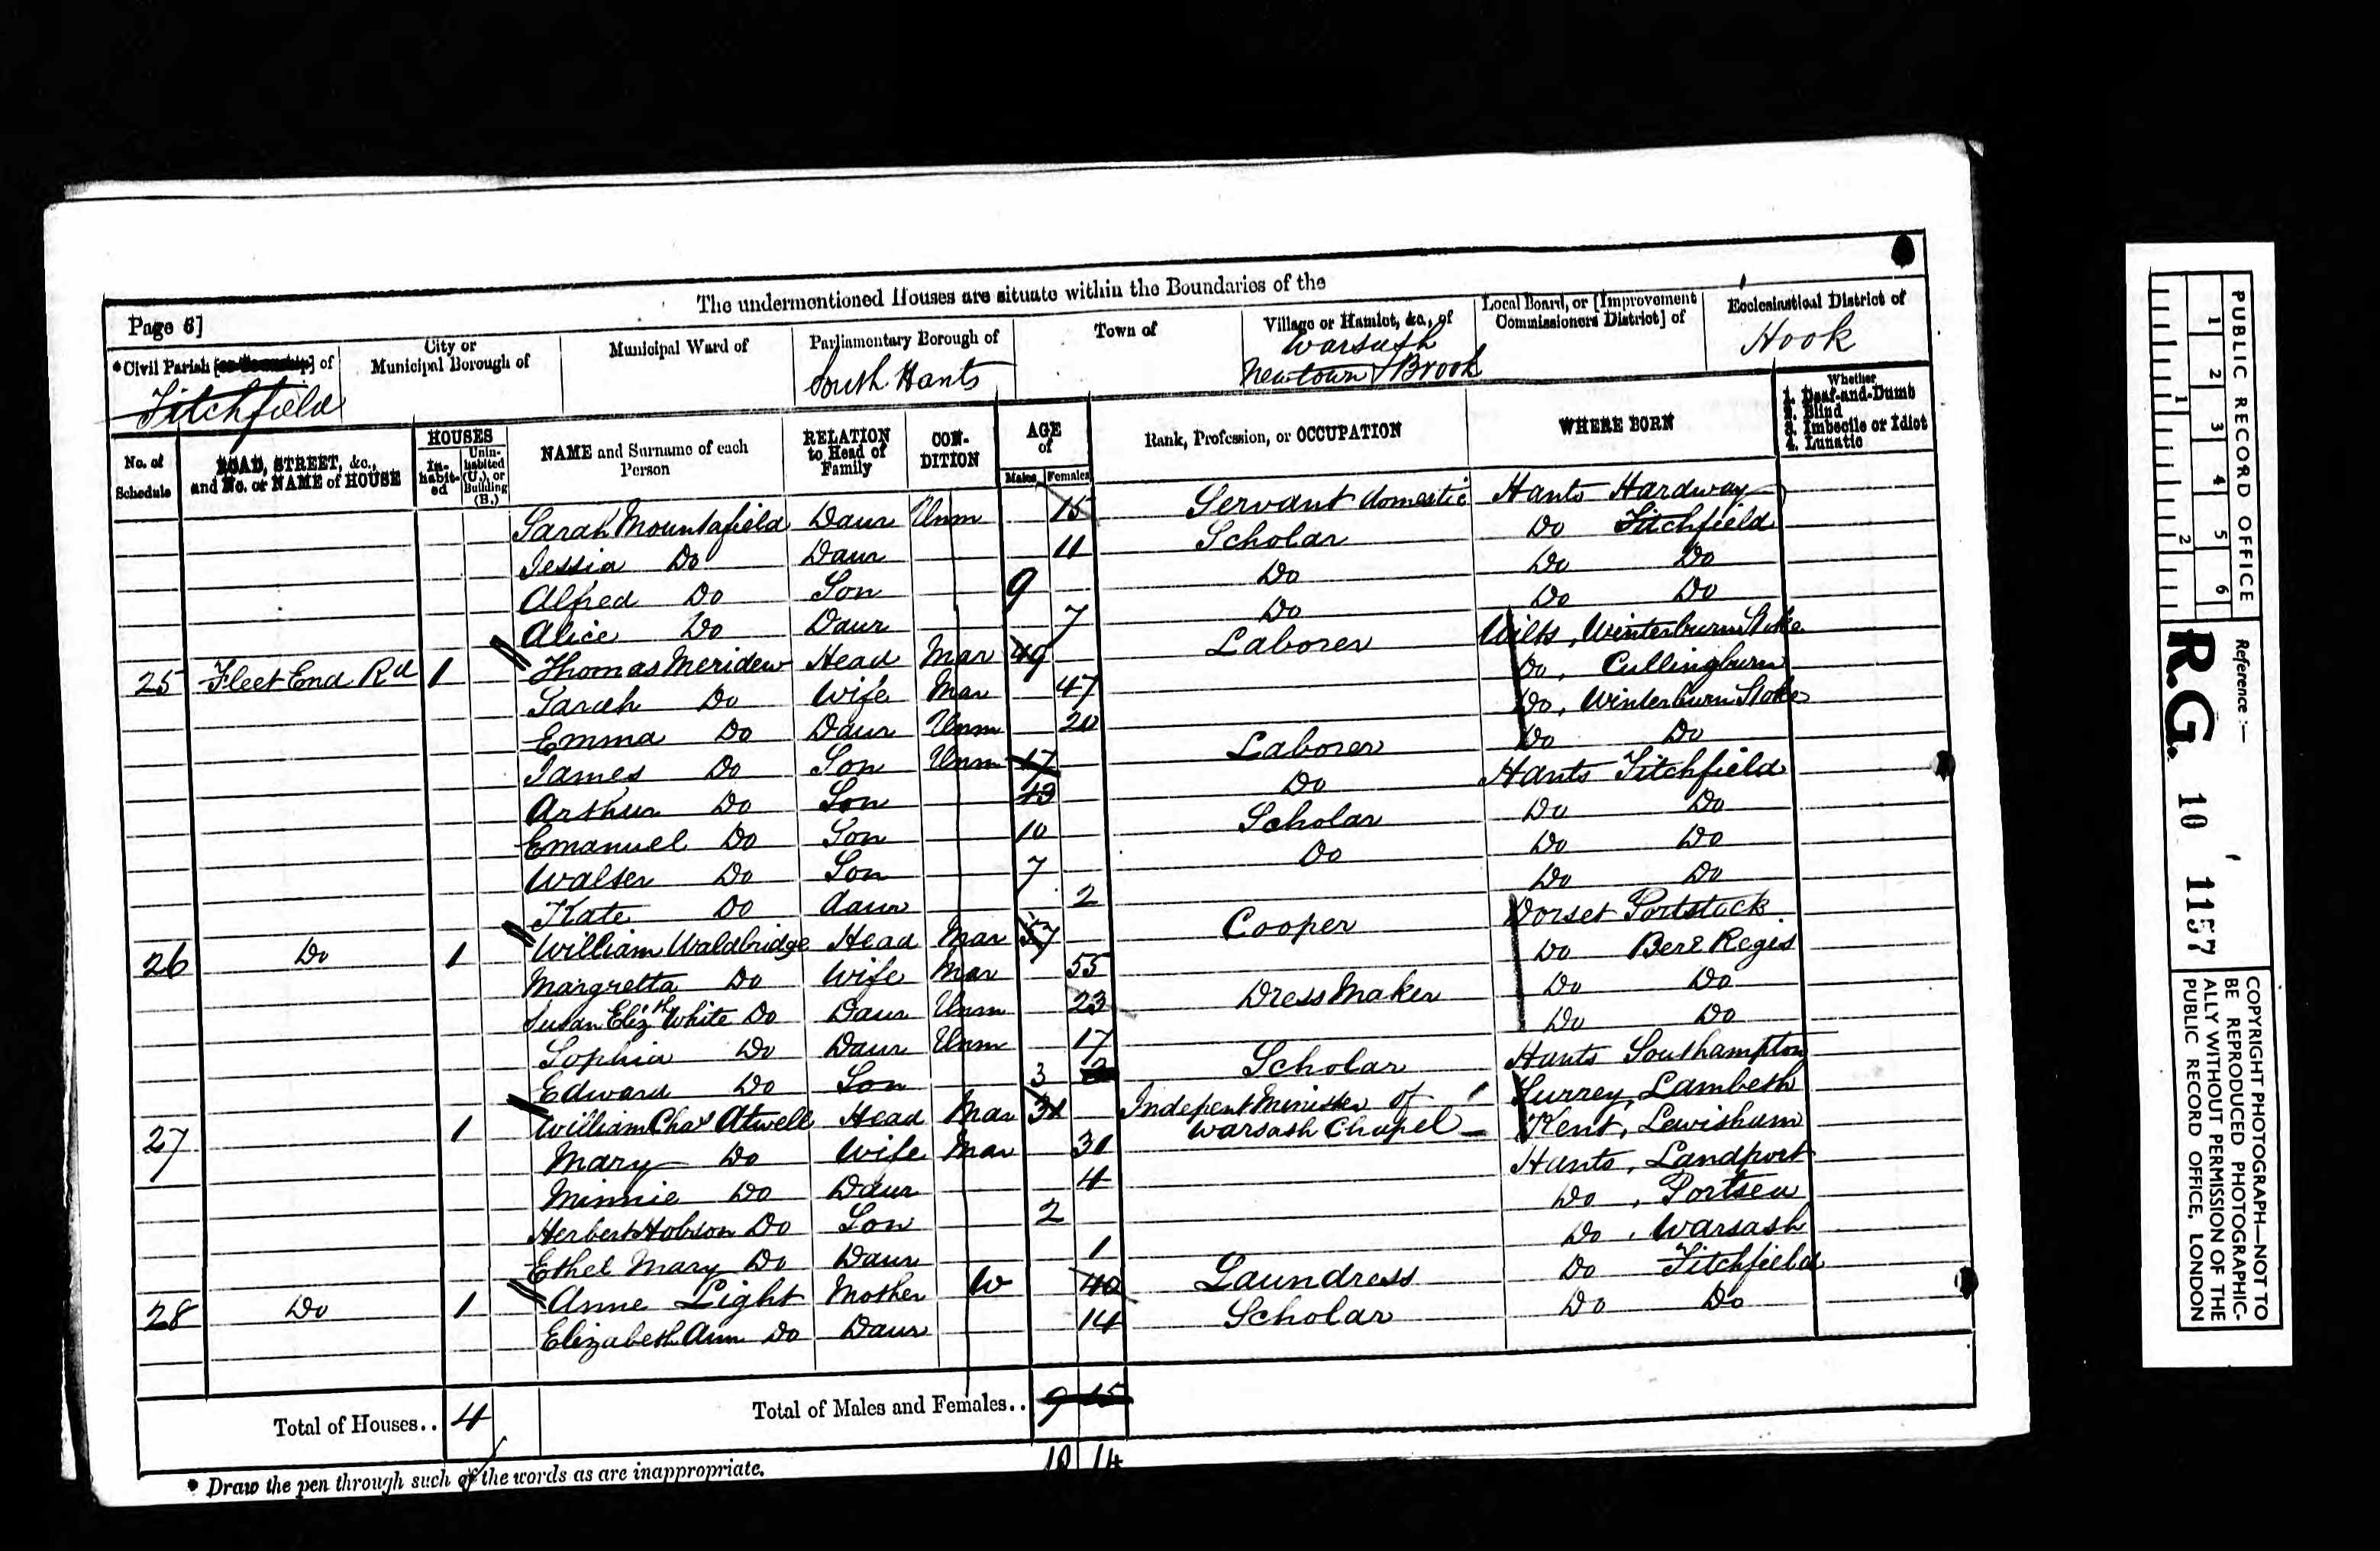 The undermentioned Houses are situate within the Boundaries of the
Page 6]
*Civil Parish [or Township] of
Titchfield
City or Municipal Borough of
Municipal Ward of
Parliamentary Borough of
South Hants
Town of
Village or Hamlet, &c., of
Warsash
Newtown & Brook
Local Board, or [Improvement Commissioners District] of
Ecclesiastical District of
Hook
No. of Schedule
ROAD, STREET, &c., and No. or NAME of HOUSE
HOUSES
In-habit-ed
Unin-habited (U.), or Building (B.)
NAME and Surname of each Person
RELATION to Head of Family
CON-DITION
AGE of
Males
Females
Rank, Profession, or OCCUPATION
WHERE BORN
Whether
1. Deaf-and-Dumb
2. Blind
3. Imbecile or Idiot
4. Lunatic
Sarah Mountafield Daur Unm 15 Servant domestic Hants Hardway
Jessia Do Daur 11 Scholar Do Titchfield
Alfred Do Son 9 Do Do Do
Alice Do Daur 7 Do Do Do
25 Fleet End Rd 1 Thomas Meridew Head Mar 49 Laborer Wilts, Winterburn Stoke
Sarah Do Wife Mar 47 Do, Cullingburn
Emma Do Daur Unm 20 Do, Winterburn Stoke
James Do Son Unm 17 Laborer Do Do
Arthur Do Son 13 Do Hants Titchfield
Emanuel Do Son 10 Scholar Do Do
Walter Do Son 7 Do Do Do
Kate Do daur 2 Do Do
26 Do 1 William Waldbridge Head Mar 57 Cooper Dorset Portstock
Margretta Do Wife Mar 55 Do Bere Regis
Susan Elizth White Do Daur Unm 23 Dress Maker Do Do
Sophia Do Daur Unm 17 Do Do
Edward Do Son 3 Scholar Hants Southampton
27 1 William Chas Atwell Head Mar 31 Indepent Minister of Warsash Chapel Surrey, Lambeth
Mary Do Wife Mar 31 Kent, Lewisham
Minnie Do Daur 4 Hants, Landport
Herbert Hobson Do Son 2 Do, Portsea
Ethel Mary Do Daur 1 Do, Warsash
28 Do 1 Anne Light Mother W 40 Laundress Do Titchfield
Elizabeth Ann Do Daur 14 Scholar Do Do
Total of Houses.. 4
Total of Males and Females.. 9 15
10 14
* Draw the pen through such of the words as are inappropriate.
PUBLIC RECORD OFFICE
1 2 3 4 5 6
1 2
Reference :—
R.G. 10 1157
COPYRIGHT PHOTOGRAPH—NOT TO
BE REPRODUCED PHOTOGRAPHIC-
ALLY WITHOUT PERMISSION OF THE
PUBLIC RECORD OFFICE, LONDON